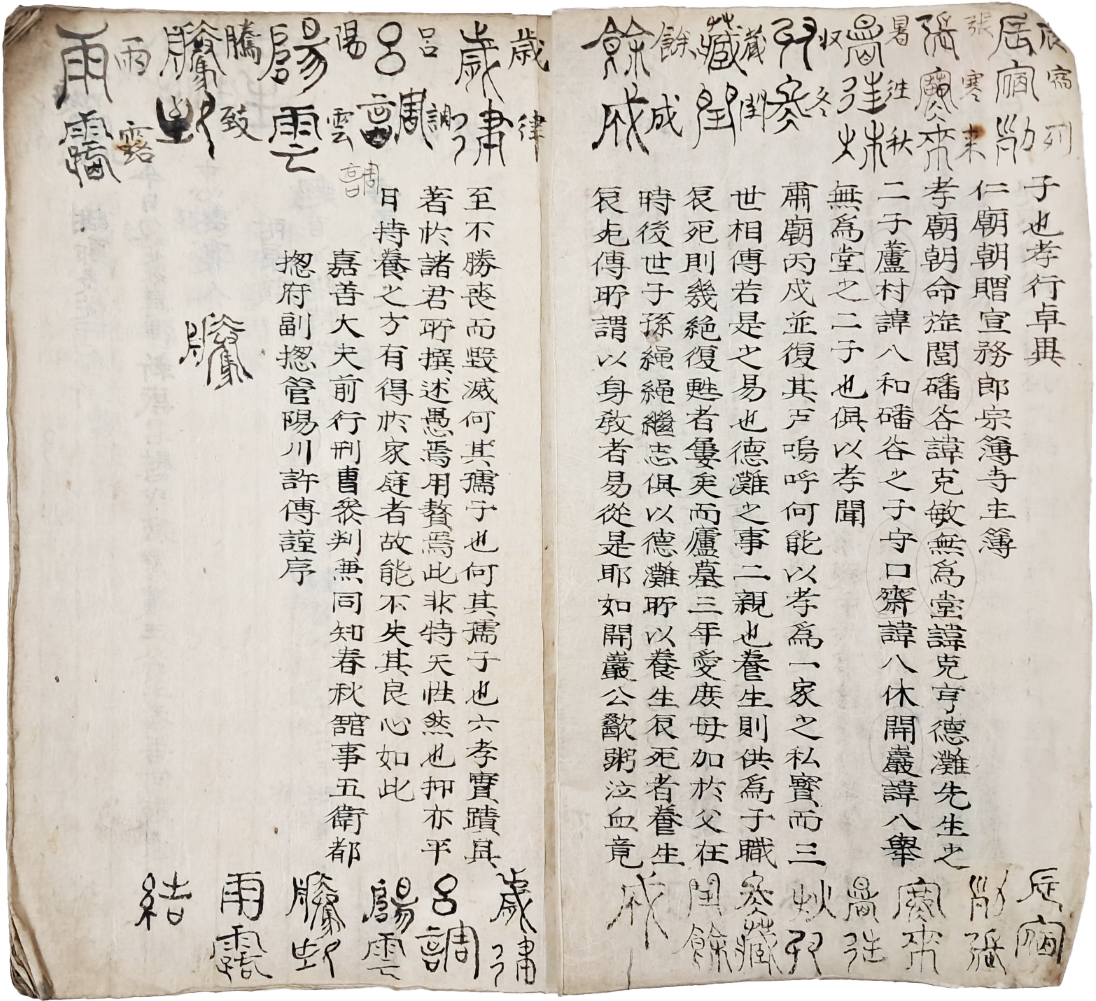 辰宿列
辰宿列
張寒來
張寒來
暑往秋
暑往秋
收冬
收冬
藏閏
藏閏
餘成
餘成
子也孝行卓異
仁廟朝贈宣務郎宗簿寺主簿
孝廟朝命㫌閭磻谷諱克敏無爲堂諱克亨德灘先生之
二子蘆村諱八和磻谷之子守口齋諱八休開巖諱八擧
無爲堂之二子也俱以孝聞
肅廟丙戌並復其戶嗚呼何能以孝爲一家之私寶而三
世相傳若是之易也德灘之事二親也養生則供爲子職
哀死則幾絶復甦者屢矣而廬墓三年愛慶母加於父在
時後世子孫繩繩繼志俱以德灘所以養生哀死者養生
哀死傳所謂以身敎者易從是耶如開巖公歠粥泣血竟
辰宿
列張
寒來
暑往
秋收
冬藏
閏餘
成
歲律
歲律
呂調
呂調
調
陽雲
陽雲
騰致
騰致
雨露
雨露
至不勝喪而毁滅何其孺子也何其孺子也六孝實蹟具
著於諸君所撰述愚焉用贅焉此非特天性然也抑亦平
日持養之方有得於家庭者故能不失其良心如此
嘉善大夫前行刑曹叅判兼同知春秋館事五衛都
摠府副摠管陽川許傳謹序
騰
歲律
呂調
陽雲
騰致
雨露
結